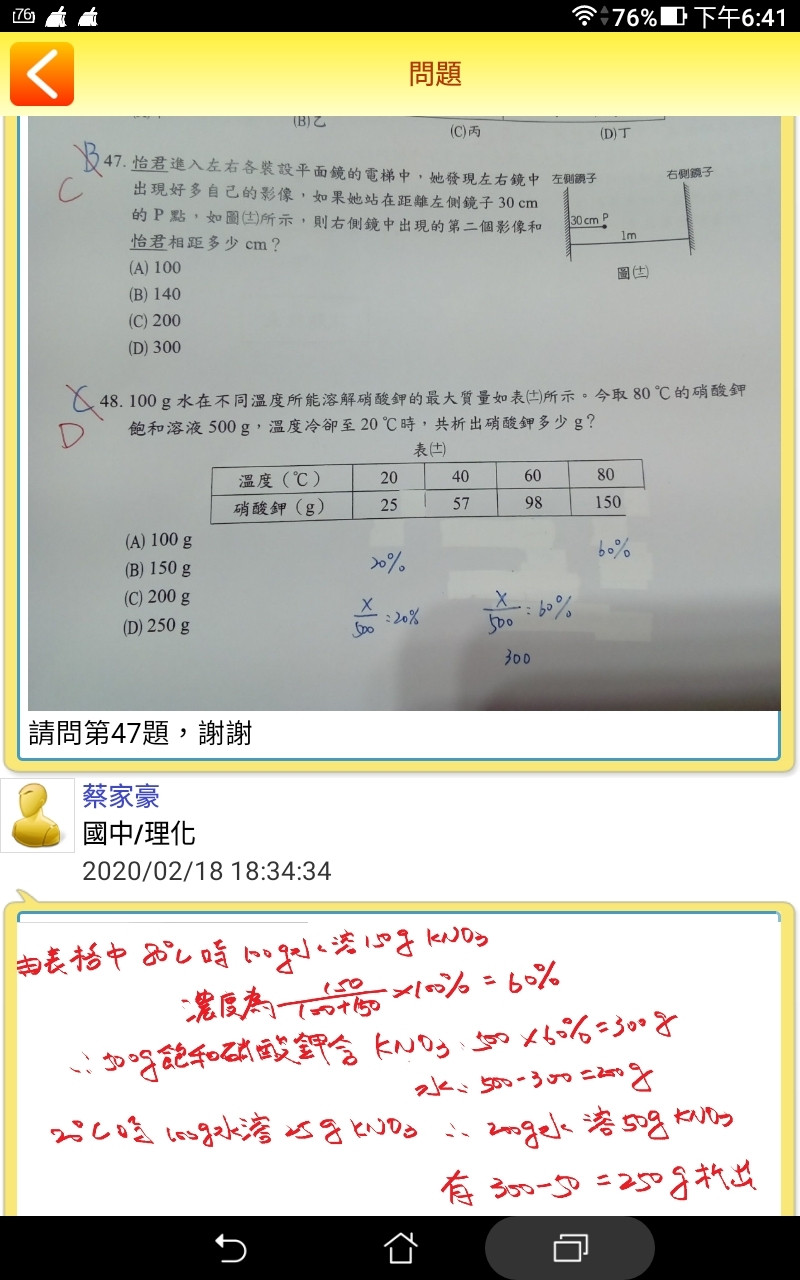 76
76%
下午6:41
問題
(B)乙
(C)丙
(D)丁
B
C
47. 怡君進入左右各裝設平面鏡的電梯中，她發現左右鏡中
出現好多自己的影像，如果她站在距離左側鏡子 30 cm
的 P 點，如圖(士)所示，則右側鏡中出現的第二個影像和
怡君相距多少 cm？
(A) 100
(B) 140
(C) 200
(D) 300
左側鏡子
右側鏡子
30 cm P
1m
圖(士)
C
D
48. 100 g 水在不同溫度所能溶解硝酸鉀的最大質量如表(士)所示。今取 80 ℃的硝酸鉀
飽和溶液 500 g，溫度冷卻至 20 ℃時，共析出硝酸鉀多少 g？
表(士)
溫度（℃） 20 40 60 80
硝酸鉀（g） 25 57 98 150
(A) 100 g
(B) 150 g
(C) 200 g
(D) 250 g
20%
60%
X/500 = 20%
X/500 = 60%
300
請問第47題，謝謝
蔡家豪
國中/理化
2020/02/18 18:34:34
由表格中 80℃時 100g水溶150g KNO3
濃度為 150/100+150 ×100% = 60%
∴ 500g飽和硝酸鉀含 KNO3: 500×60%=300g
水: 500-300=200g
20℃時 100g水溶 25g KNO3 ∴ 200g水溶50g KNO3
有 300-50=250g析出